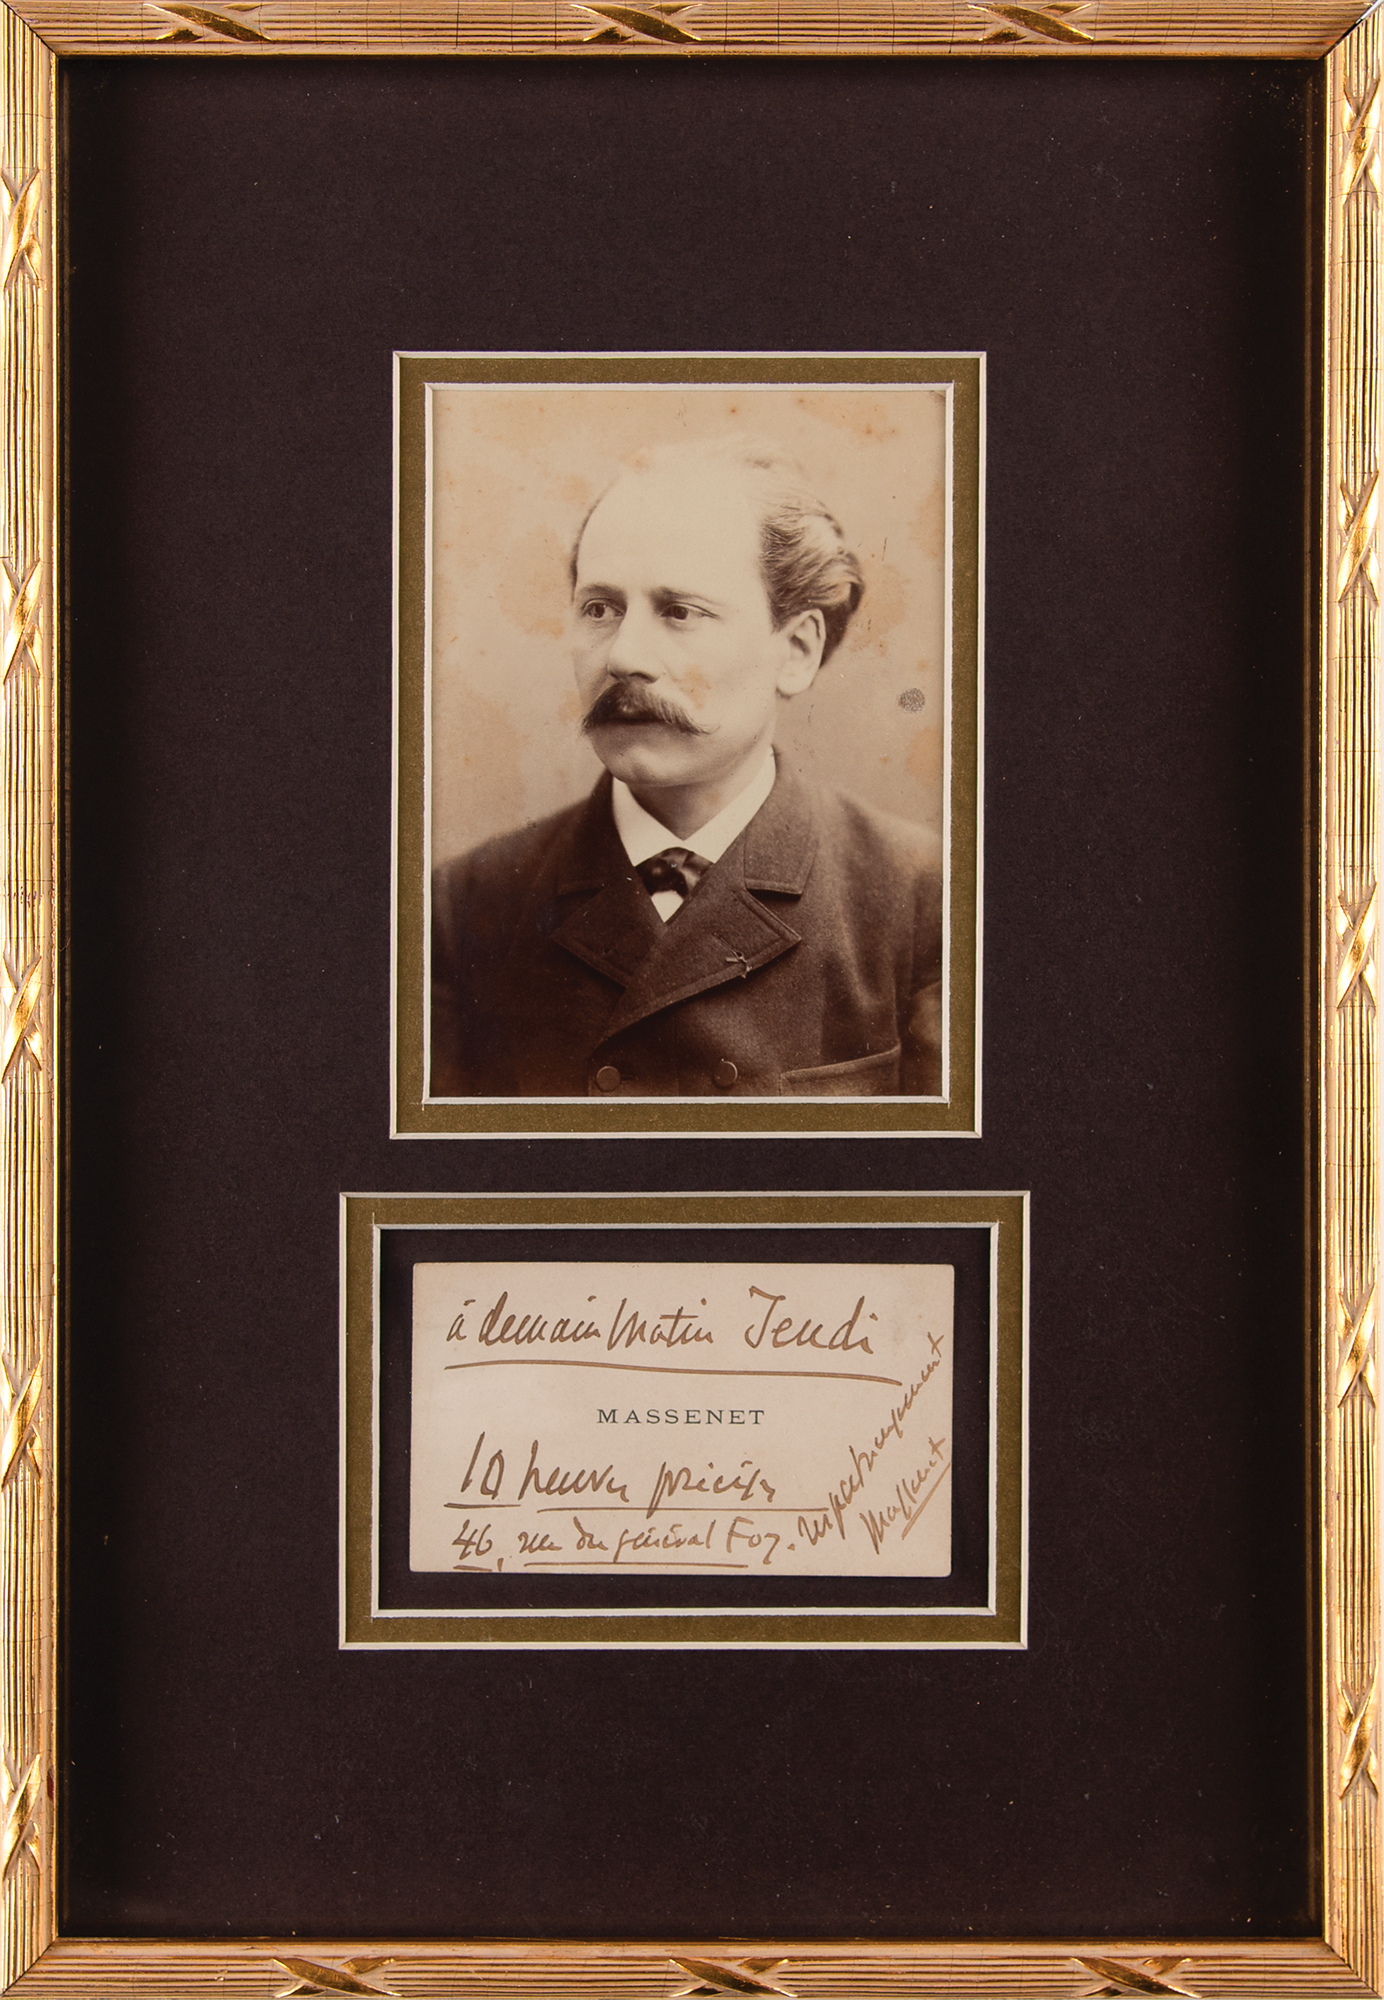 à demain matin Jeudi
MASSENET
10 heures précises
46, rue du général Foy.
respectueusement
Massenet